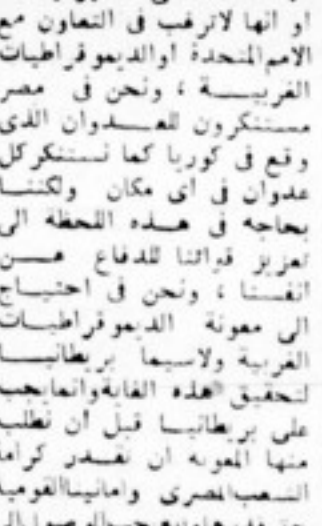 او انها لاترغب فى التعاون مع
الامم المتحدة أوالديموقراطيات
الغربيـــة ، ونحن فى مصر
مستنكرون للعـــدوان الذى
وقع فى كوريا كما نستنكر كل
عدوان فى اى مكان ولكننـــا
بحاجه فى هـــذه اللحظة الى
تعزيز قواتنا للدفاع عـــن
انفسنا ، ونحن فى احتيـــاج
الى معونة الديموقراطيـــات
الغربية ولاسيما بريطانيـــا
لتحقيق هذه الغاية وانما يجب
على بريطانيـــا قبل أن نطلب
منها المعونه ان تقـــدر كرامة
الشعب المصرى وامانينا القومية